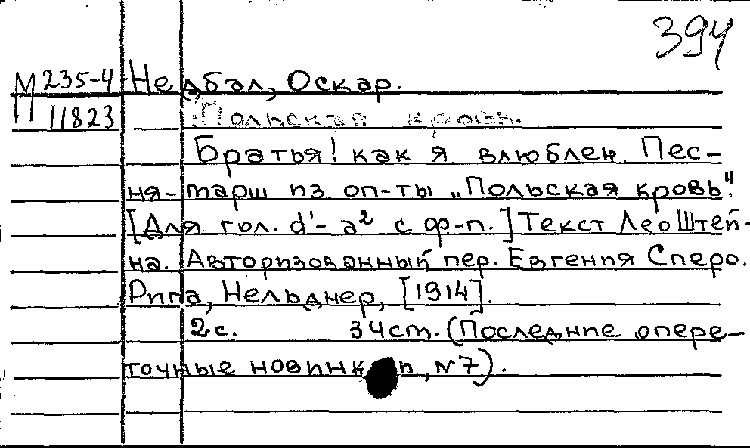 394
М 235-4 Недбал, Оскар.
11823 Польская кровь.
Братья! как я влюблен. Пес-
ня-марш из оп-ты „Польская кровь".
[Для гол. d¹-a² с ф-п.] Текст Лео Штей-
на. Авторизованный пер. Евгения Сперо.
Рига, Нельднер, [1914].
2с. 34 cm. (Последние опере-
точные новинки, N7).